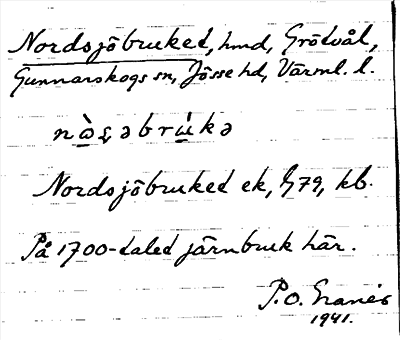 Nordsjöbruket, hmd, Grötvål,
Gunnarskogs sn, Jösse hd, Värml. l.
Nordsjöbruket ek, G79, kb.
På 1700-talet järnbruk här.
P.O. Granér
1941.